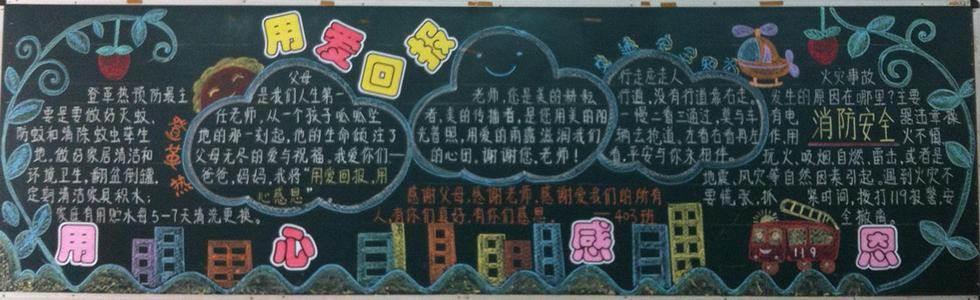 用爱回报
登革热预防最主
要是要做好灭蚊、
防蚊和清除蚊虫孳生
地。做好家居清洁和
环境卫生，翻盆倒罐，
定期清洁家具积水；
家庭有用贮水每5-7天清洗更换。
父母
是我们人生第一
任老师，从一个孩子呱呱坠
地的那一刻起，他的生命倾注了
父母无尽的爱与祝福。我爱你们——
爸爸，妈妈，我将“用爱回报，用
心感恩”。
老师，您是美的耕耘
者，美的传播者，是您用美的阳
光普照，用爱的雨露滋润我们
的心田，谢谢您，老师！
行走应走人
行道，没有行道靠右走。
一慢二看三通过，莫与车
辆去抢道。左看右看再左
看，平安与你永相伴。
火灾事故
发生的原因在哪里？主要
有电
作用
消防安全
火不慎，
玩火，吸烟，自然，雷击，或者是
地震，风灾等自然因素引起。遇到火灾不
要慌张，抓
时间，拨打119报警，安
全撤离。
感谢父母，感谢老师，感谢爱我们的所有
人，有你们真好，有你们感恩。
——403班
119
用心感恩